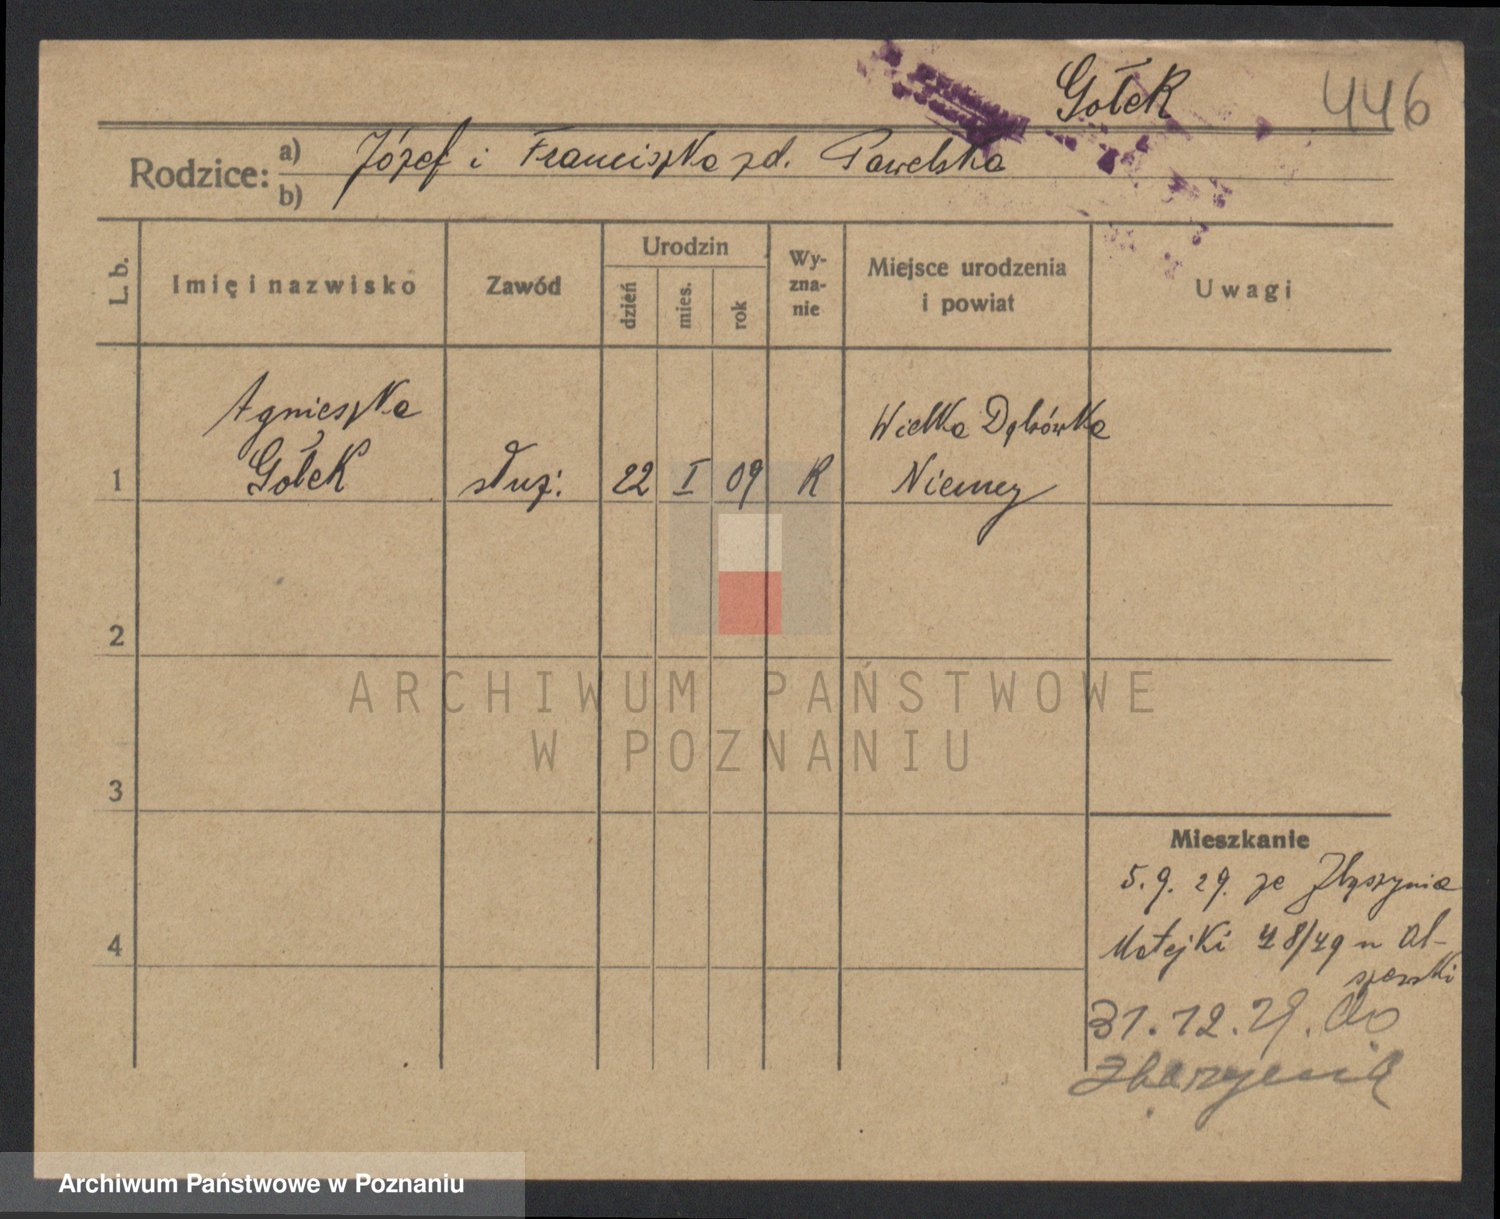 Gołek 446
Rodzice: a) Józef i Franciszka zd. Pawelska
b)
L. b. Imię i nazwisko Zawód Urodzin dzień mies. rok Wy-zna-nie Miejsce urodzenia i powiat Uwagi
Agnieszka Wielka Dąbrówka
1 Gołek służ: 22 I 09 R Niemcy
2
3
Mieszkanie
5.9.29. ze Zbąszynia
4 Matejki 48/49 u Ol-
szewski
31.12.29. do
Zbąszynia
ARCHIWUM PAŃSTWOWE
W POZNANIU
Archiwum Państwowe w Poznaniu